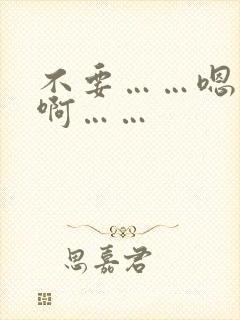 不要……嗯
啊……
思嘉君